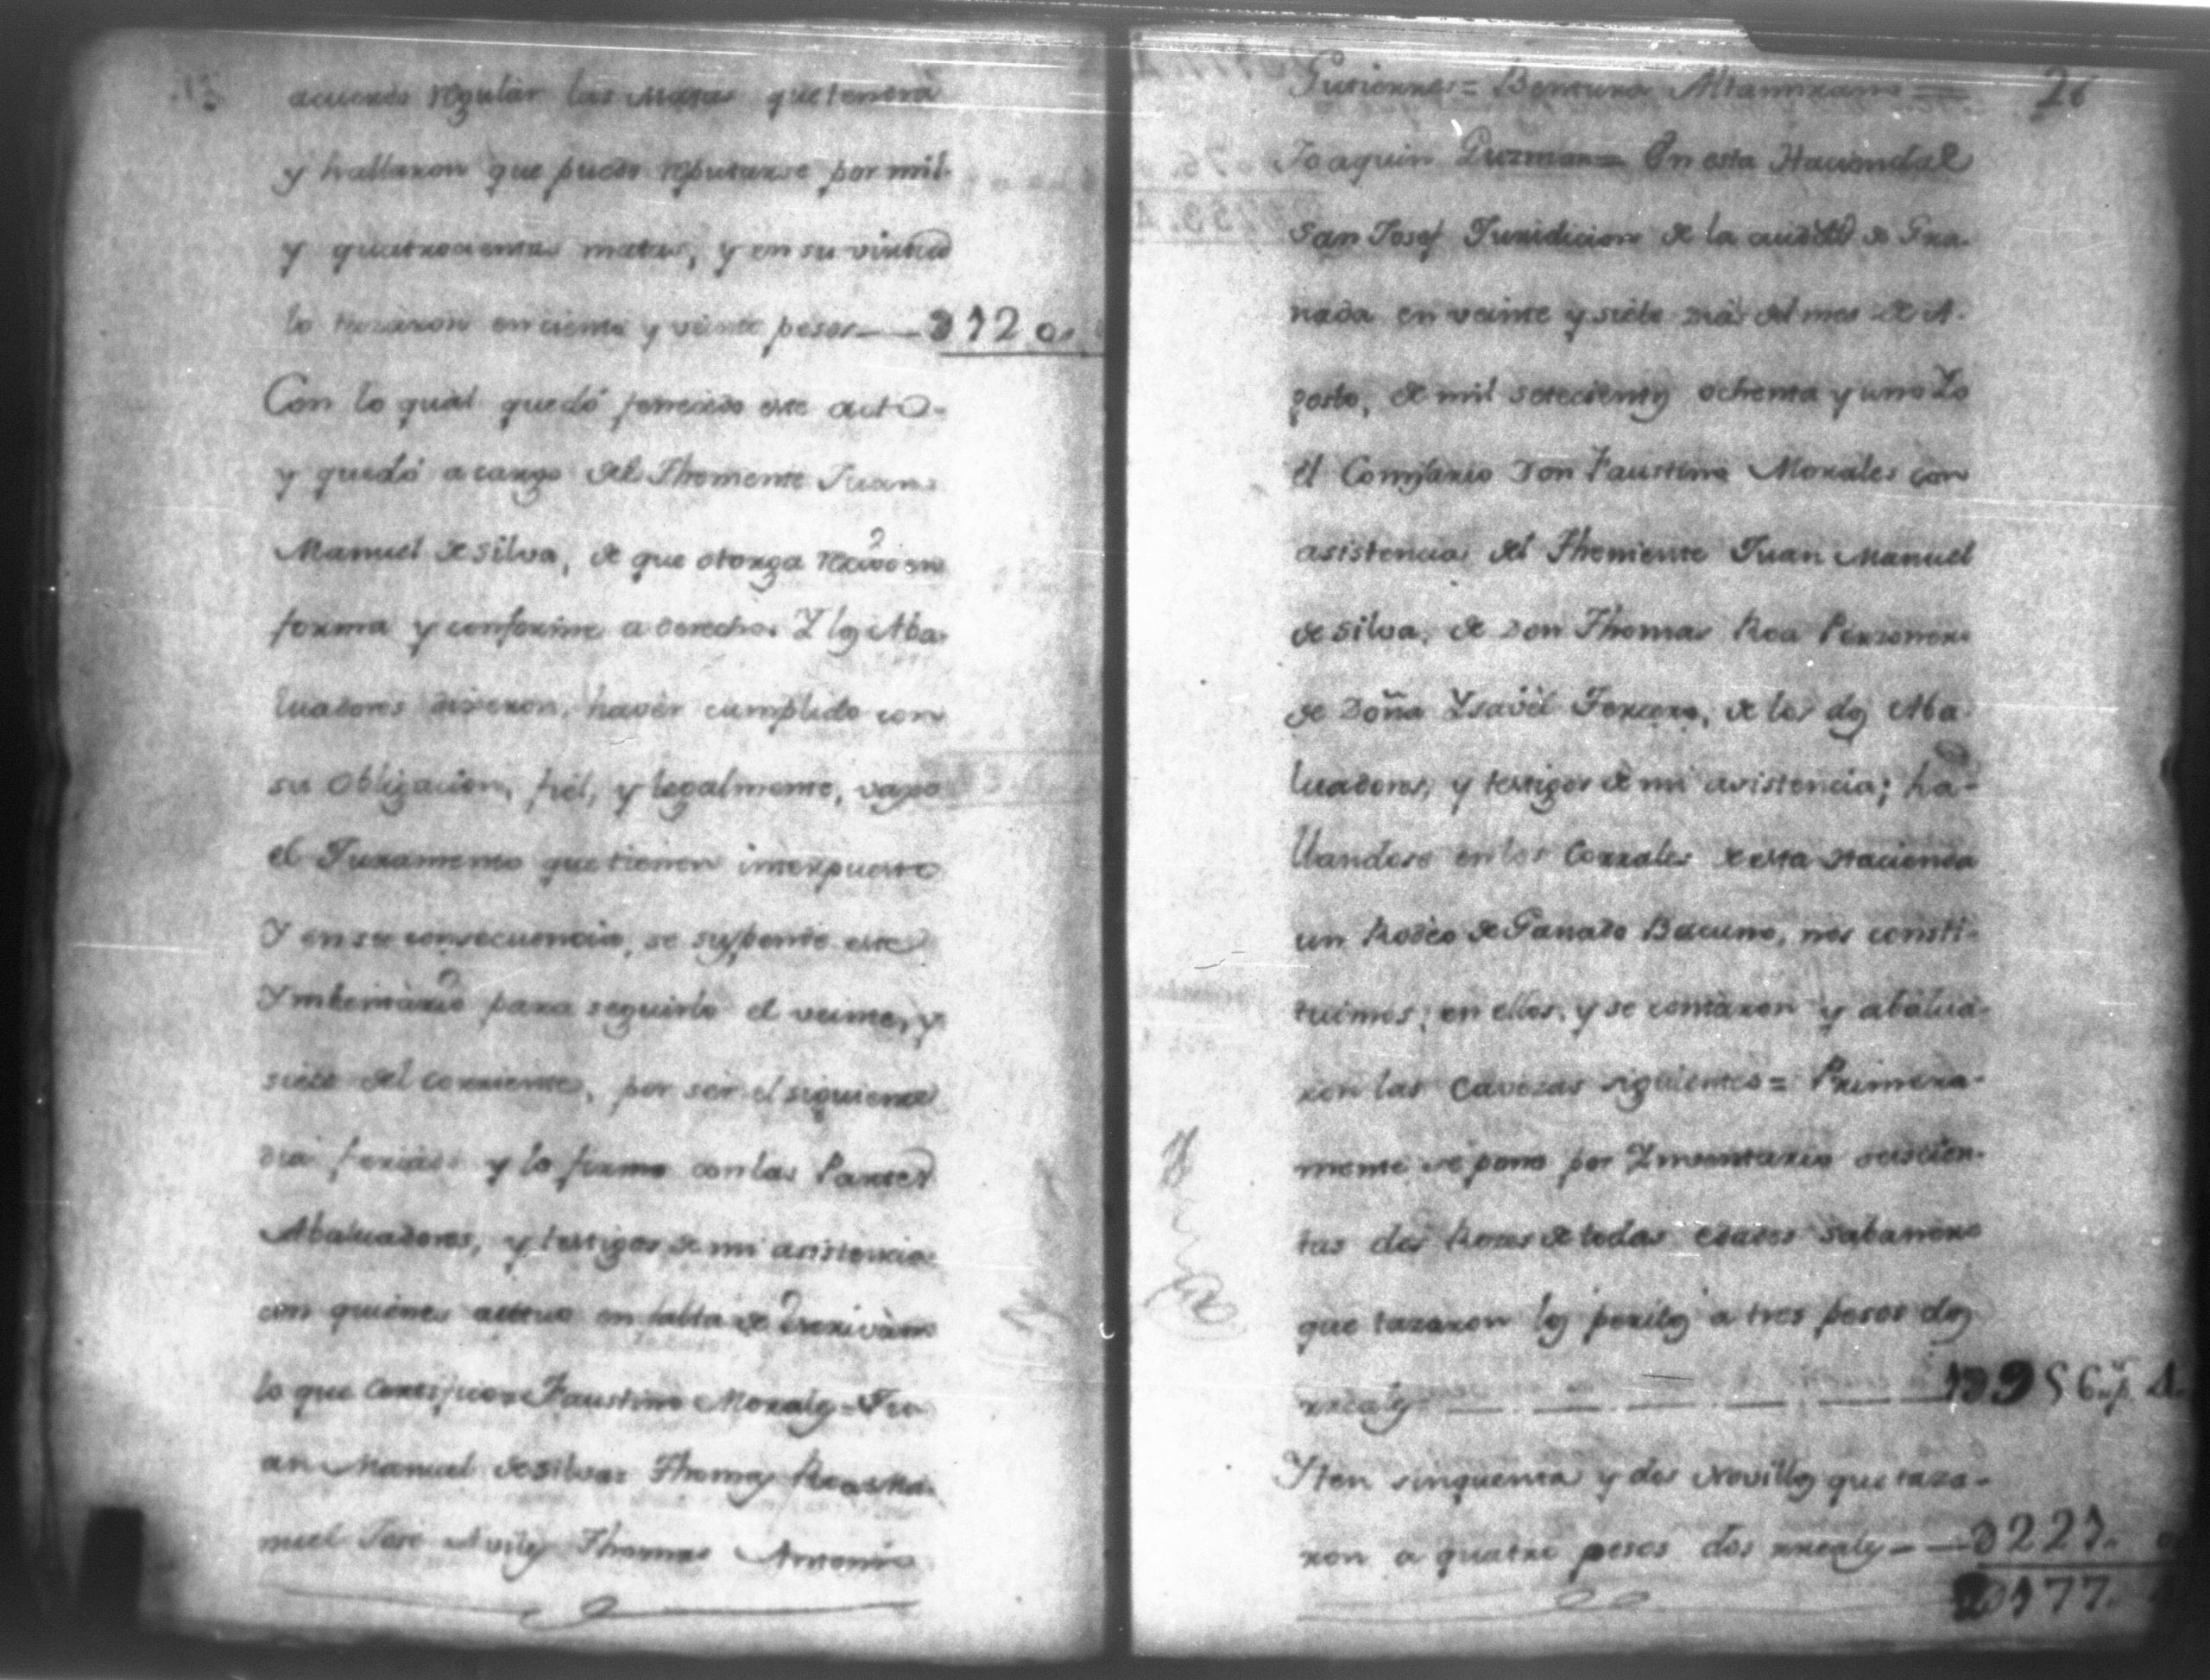 acuerdo regular las Matas que tenera
y hallaron que puede reputarse por mil
y quatrocientas matas, y en su virtud
lo tazaron en ciento y veinte pesos — 0120.
Con lo qual quedó fenecido este acto
y quedó a cargo del Theniente Juan
Manuel de Silva, de que otorga recivo en
forma y conforme a derecho. Y los Aba-
luadores dixeron, haver cumplido con
su obligacion, fiel, y legalmente, vajo
el Juramento que tienen interpuesto
Y en su consecuencia, se suspende este
Ymbentario para seguirlo el veinte, y
siete del corriente, por ser el siguiente
dia feriado y lo firmo con las Partes
Abaluadores, y testigos de mi asistencia
con quienes actuo en falta de Escrivano
lo que Certifico = Faustino Morales = Ju-
an Manuel de Silva = Thomas Roa = Ma-
nuel Jose Aviles Thomas Antonio
26
Gutierres = Bentura Altamirano =
Joaquin Guzman = En esta Hacienda de
San Josef Juridicion de la ciudad de Gra-
nada en veinte y siete dias del mes de A-
gosto, de mil setecientos ochenta y uno Yo
el Comisario Don Faustino Morales con
asistencia del Theniente Juan Manuel
de Silva, de Don Thomas Roa Personero
de Doña Ysavel Ferrera, de los dos Aba-
luadores, y testigos de mi asistencia; ha-
llandose en los Corrales de esta Hacienda
un Rodeo de Ganado Bacuno, nos consti-
tuimos, en ellos, y se contaron y abalua-
ron las cavezas siguientes = Primera-
mente se pone por Ynventario seiscien-
tas dos Reses de todas edades sabanero
que tazaron los peritos a tres pesos dos
rreales — 1956 ps. 4.
Yten sinquenta y dos Novillos que taza-
ron a quatro pesos dos rreales — 0221. 0
20177. 4